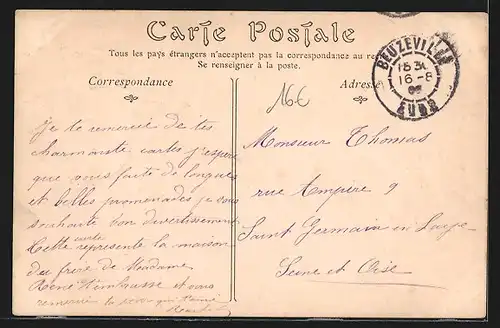 Carte Postale
Tous les pays étrangers n'acceptent pas la correspondance au re
Se renseigner à la poste.
Correspondance
Adresse
BEUZEVILLE
16-8
EURE
16 €
je te remercie de tes
charmante cartes j'espere
que vous faite de longues
et belles promenades je vous
souhaite bon divertissement
Cette carte represente la maison
du frère de Madame
René et vous
remercie
Monsieur Thomas
rue Ampère 9
Saint Germain en Laye
Seine et Oise